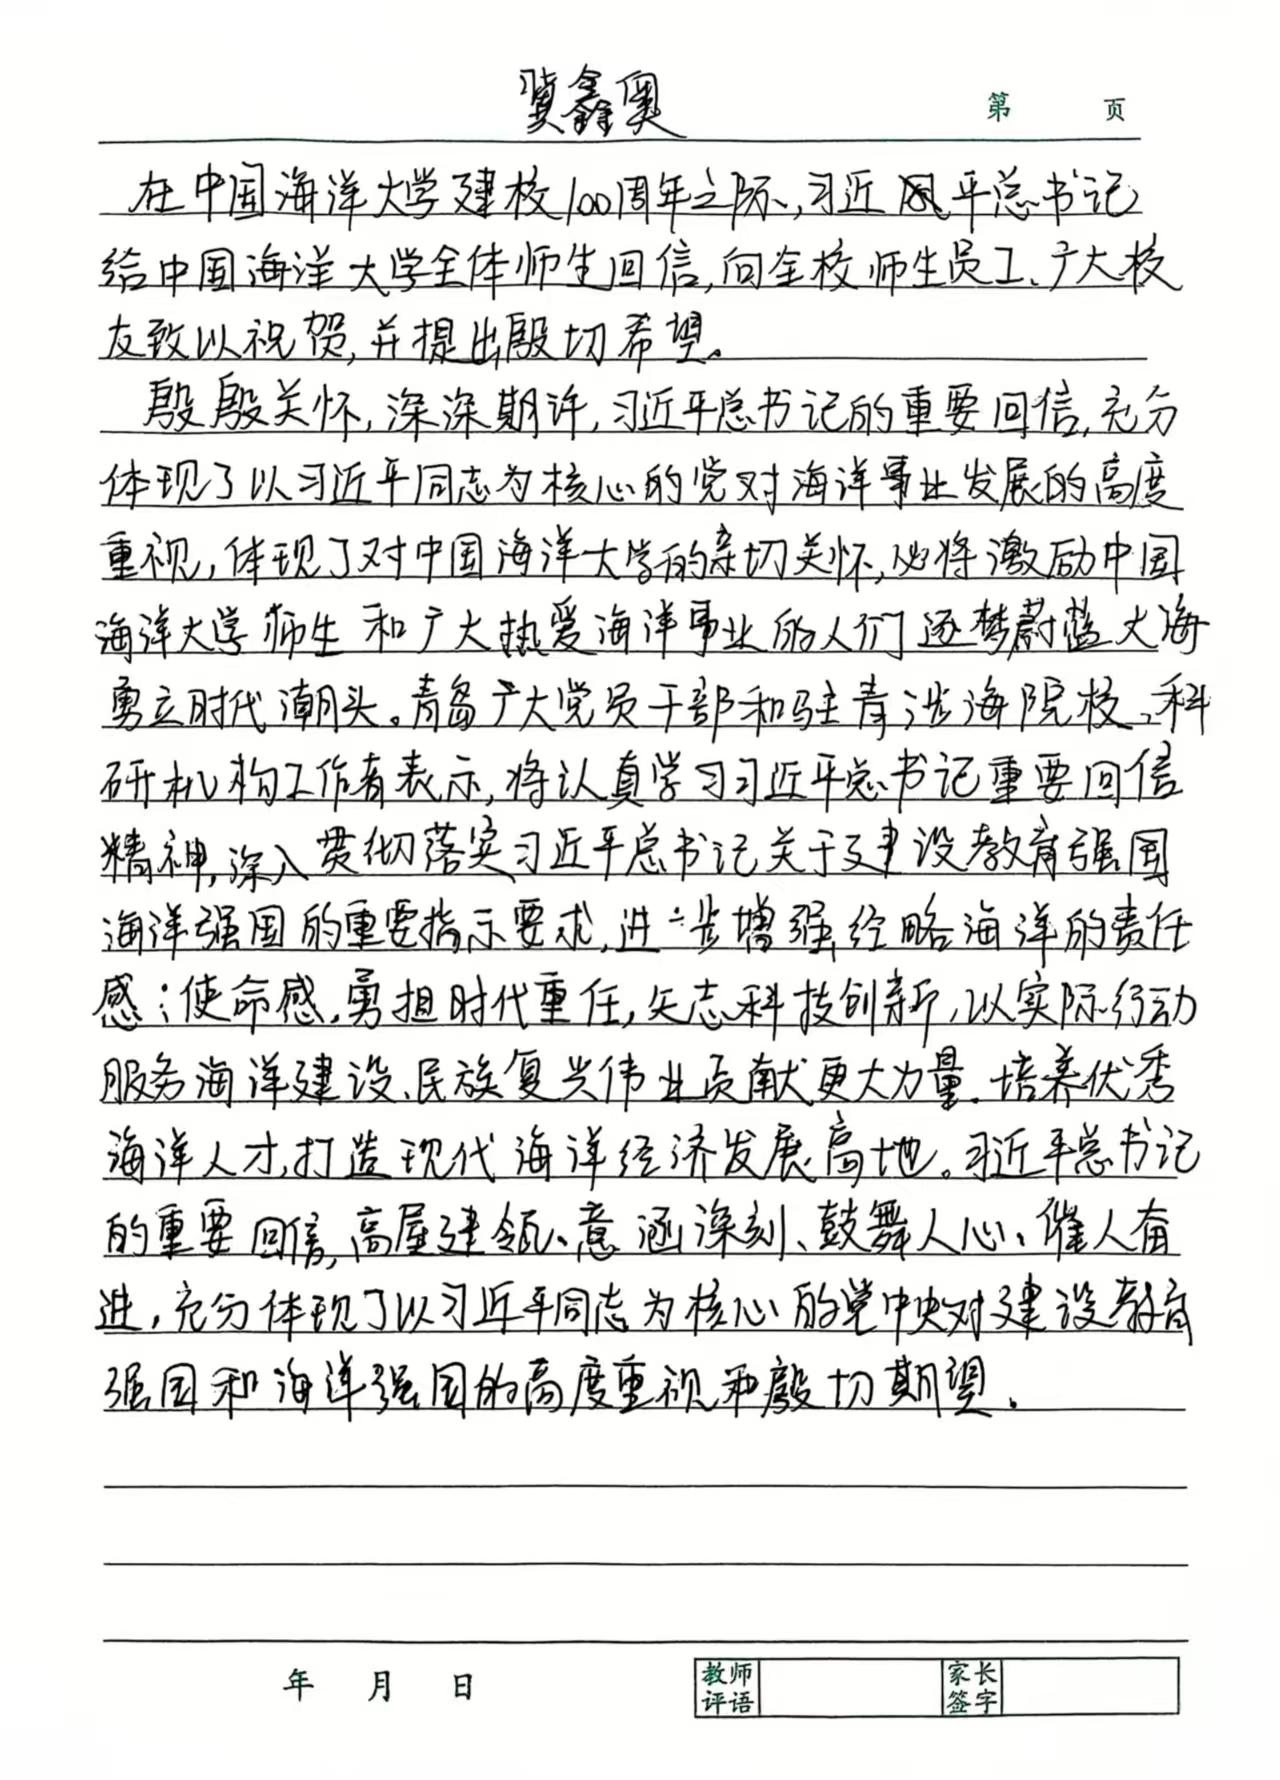 冀鑫奥
第 页
在中国海洋大学建校100周年之际,习近平总书记
给中国海洋大学全体师生回信,向全校师生员工、广大校
友致以祝贺,并提出殷切希望。
殷殷关怀,深深期许,习近平总书记的重要回信,充分
体现了以习近平同志为核心的党对海洋事业发展的高度
重视,体现了对中国海洋大学的亲切关怀,必将激励中国
海洋大学师生和广大热爱海洋事业的人们逐梦蔚蓝大海
勇立时代潮头。青岛广大党员干部和驻青涉海院校、科
研机构工作者表示,将认真学习习近平总书记重要回信
精神,深入贯彻落实习近平总书记关于建设教育强国
海洋强国的重要指示要求,进一步增强经略海洋的责任
感;使命感,勇担时代重任,矢志科技创新,以实际行动
服务海洋建设、民族复兴伟业贡献更大力量。培养优秀
海洋人才,打造现代海洋经济发展高地。习近平总书记
的重要回信,高屋建瓴、意涵深刻、鼓舞人心、催人奋
进,充分体现了以习近平同志为核心的党中央对建设教育
强国和海洋强国的高度重视和殷切期望。
年 月 日
教师评语 家长签字